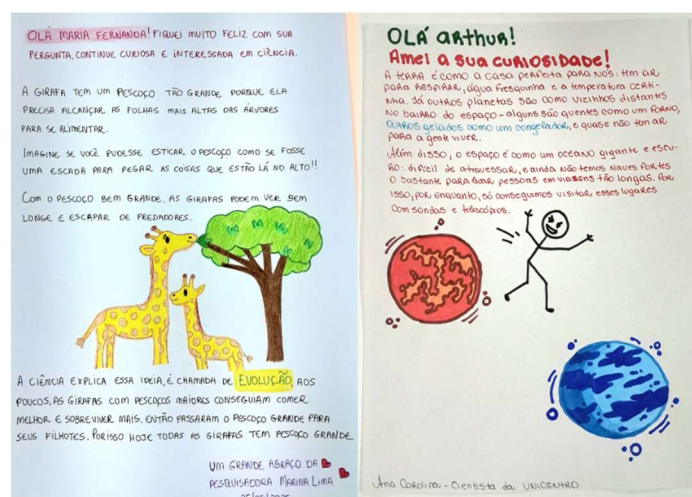 OLÁ MARIA FERNANDA! FIQUEI MUITO FELIZ COM SUA
PERGUNTA, CONTINUE CURIOSA E INTERESSADA EM CIÊNCIA.
A GIRAFA TEM UM PESCOÇO TÃO GRANDE PORQUE ELA
PRECISA ALCANÇAR AS FOLHAS MAIS ALTAS DAS ÁRVORES
PARA SE ALIMENTAR.
IMAGINE SE VOCÊ PUDESSE ESTICAR O PESCOÇO COMO SE FOSSE
UMA ESCADA PARA PEGAR AS COISAS QUE ESTÃO LÁ NO ALTO!!
COM O PESCOÇO BEM GRANDE, AS GIRAFAS PODEM VER BEM
LONGE E ESCAPAR DE PREDADORES.
A CIÊNCIA EXPLICA ESSA IDEIA, É CHAMADA DE EVOLUÇÃO, AOS
POUCOS, AS GIRAFAS COM PESCOÇOS MAIORES CONSEGUIAM COMER
MELHOR E SOBREVIVER MAIS. ENTÃO PASSARAM O PESCOÇO GRANDE PARA
SEUS FILHOTES. POR ISSO HOJE TODAS AS GIRAFAS TEM PESCOÇO GRANDE.
UM GRANDE ABRAÇO DA
PESQUISADORA MARINA LIMA
OLÁ Arthur!
Amei a sua curiosidade!
A Terra é como a casa perfeita para nós: tem ar
para respirar, água fresquinha e a temperatura certi-
nha. Já outros planetas são como vizinhos distantes
no bairro do espaço - alguns são quentes como um forno,
outros gelados como um congelador, e quase não tem ar
para a gente viver.
Além disso, o espaço é como um oceano gigante e escu-
ro: difícil de atravessar, e ainda não temos naves fortes
o bastante para levar pessoas em viagens tão longas. Por
isso, por enquanto, só conseguimos visitar esses lugares
com sondas e telescópios.
Ana Carolina - Cientista da UNICENTRO